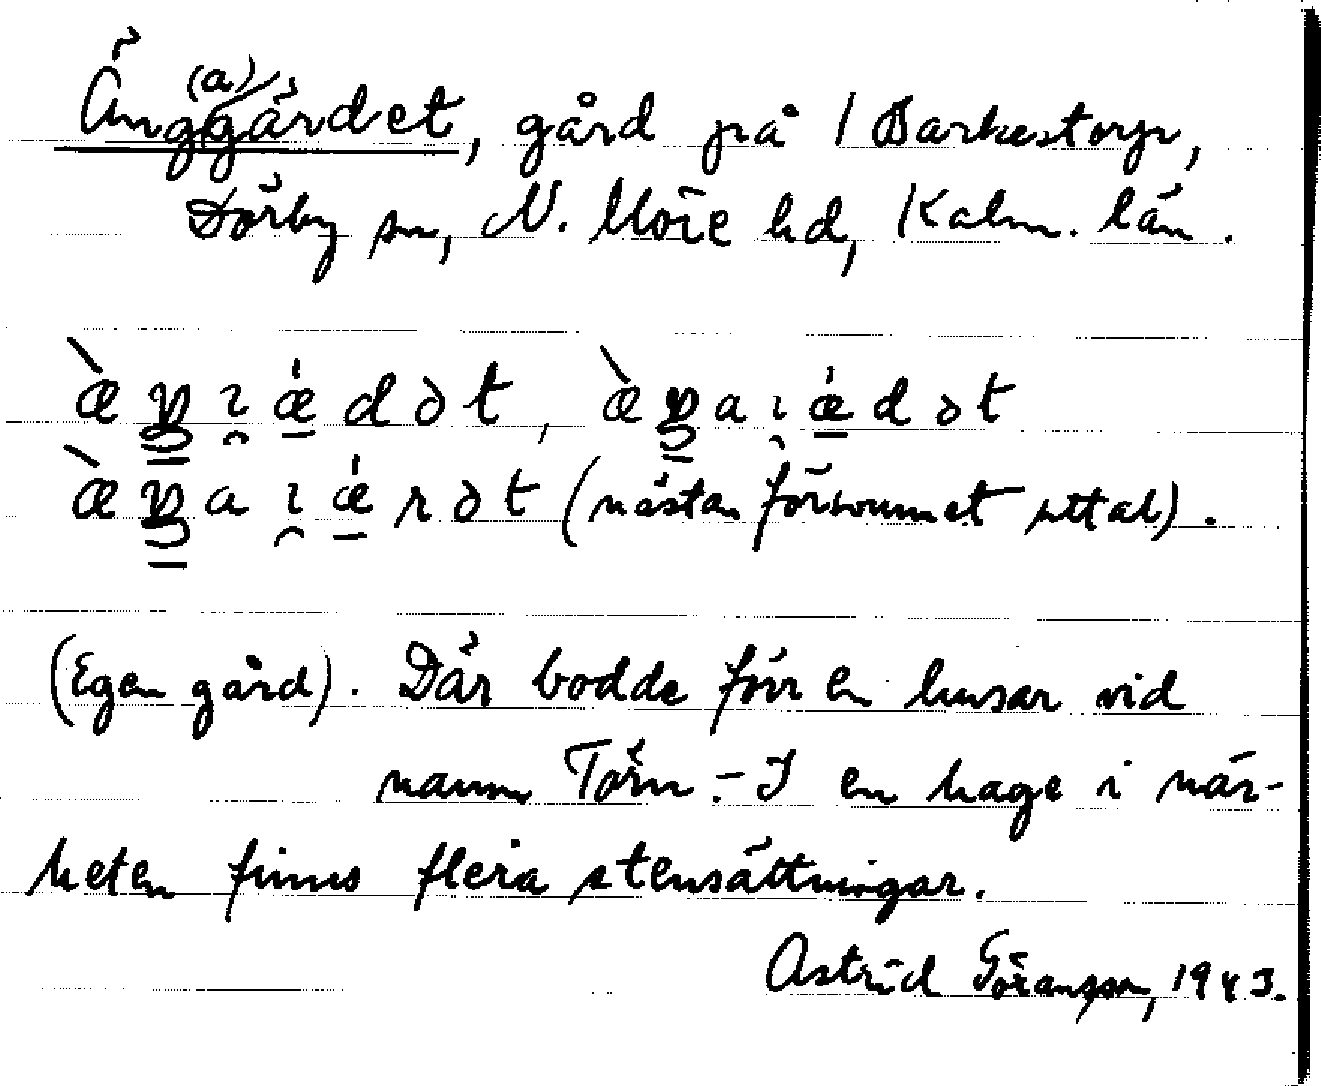 Äng(a)gärdet, gård på 1 Barkestorp,
Dörby sn, N. Möre hd, Kalm. län.
(nästan försvunnet uttal).
(Egen gård). Där bodde förr en husar vid
namn Törn. - I en hage i när-
heten finns flera stensättningar.
Astrid Göransson, 1943.